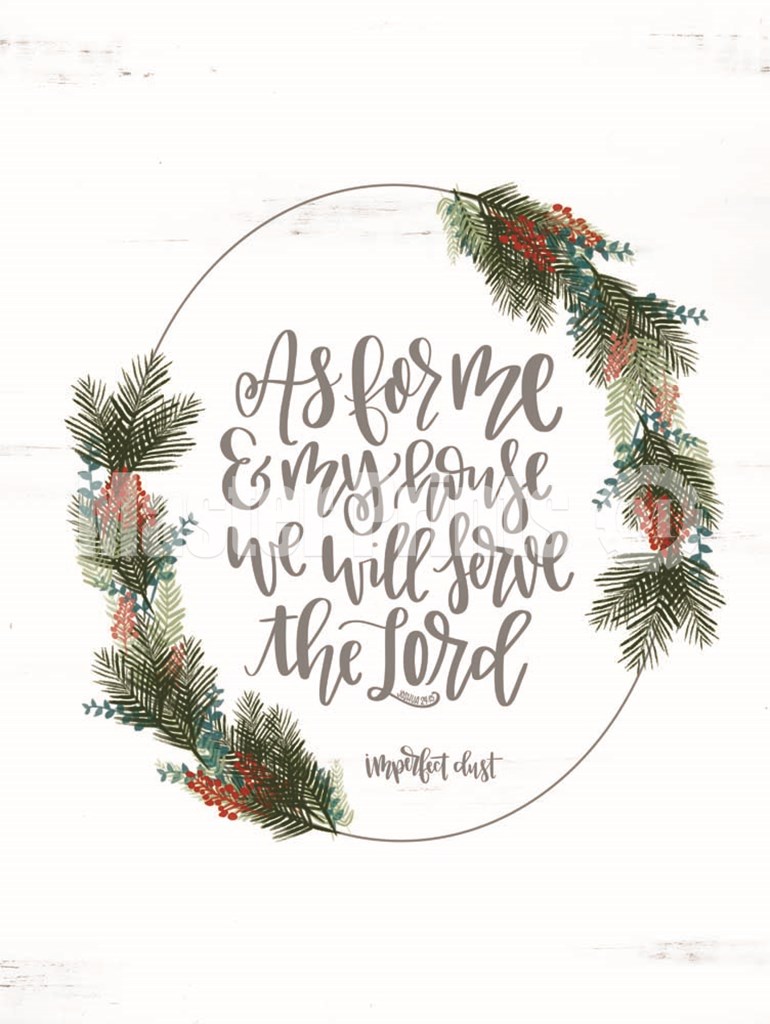 As for me
& my house
we will serve
the Lord
Joshua 24:15
imperfect dust